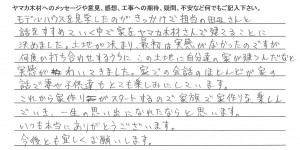 ヤマカ木材へのメッセージやご意見、感想、工事への期待、疑問、不安など何でもご記入下さい。
モデルハウスを見学したのがきっかけで担当の田辺さんと
話をすすめていく中で家をヤマカ木材さんで建てることに
決めました。土地が決まり、最初は実感がなかったのですが
何度か打ち合わせするうちに、この土地に自分達の家が建つんだなと
実感がわいてきました。家での会話のほとんどが家の
話で妻も子供達もとても楽しみにしています。
これから家作りがスタートするので家族で家作りを楽しん
でいき、一生の思い出になれたならと思います。
いつも本当にありがとうございます。
今後とも宜しくお願いします。